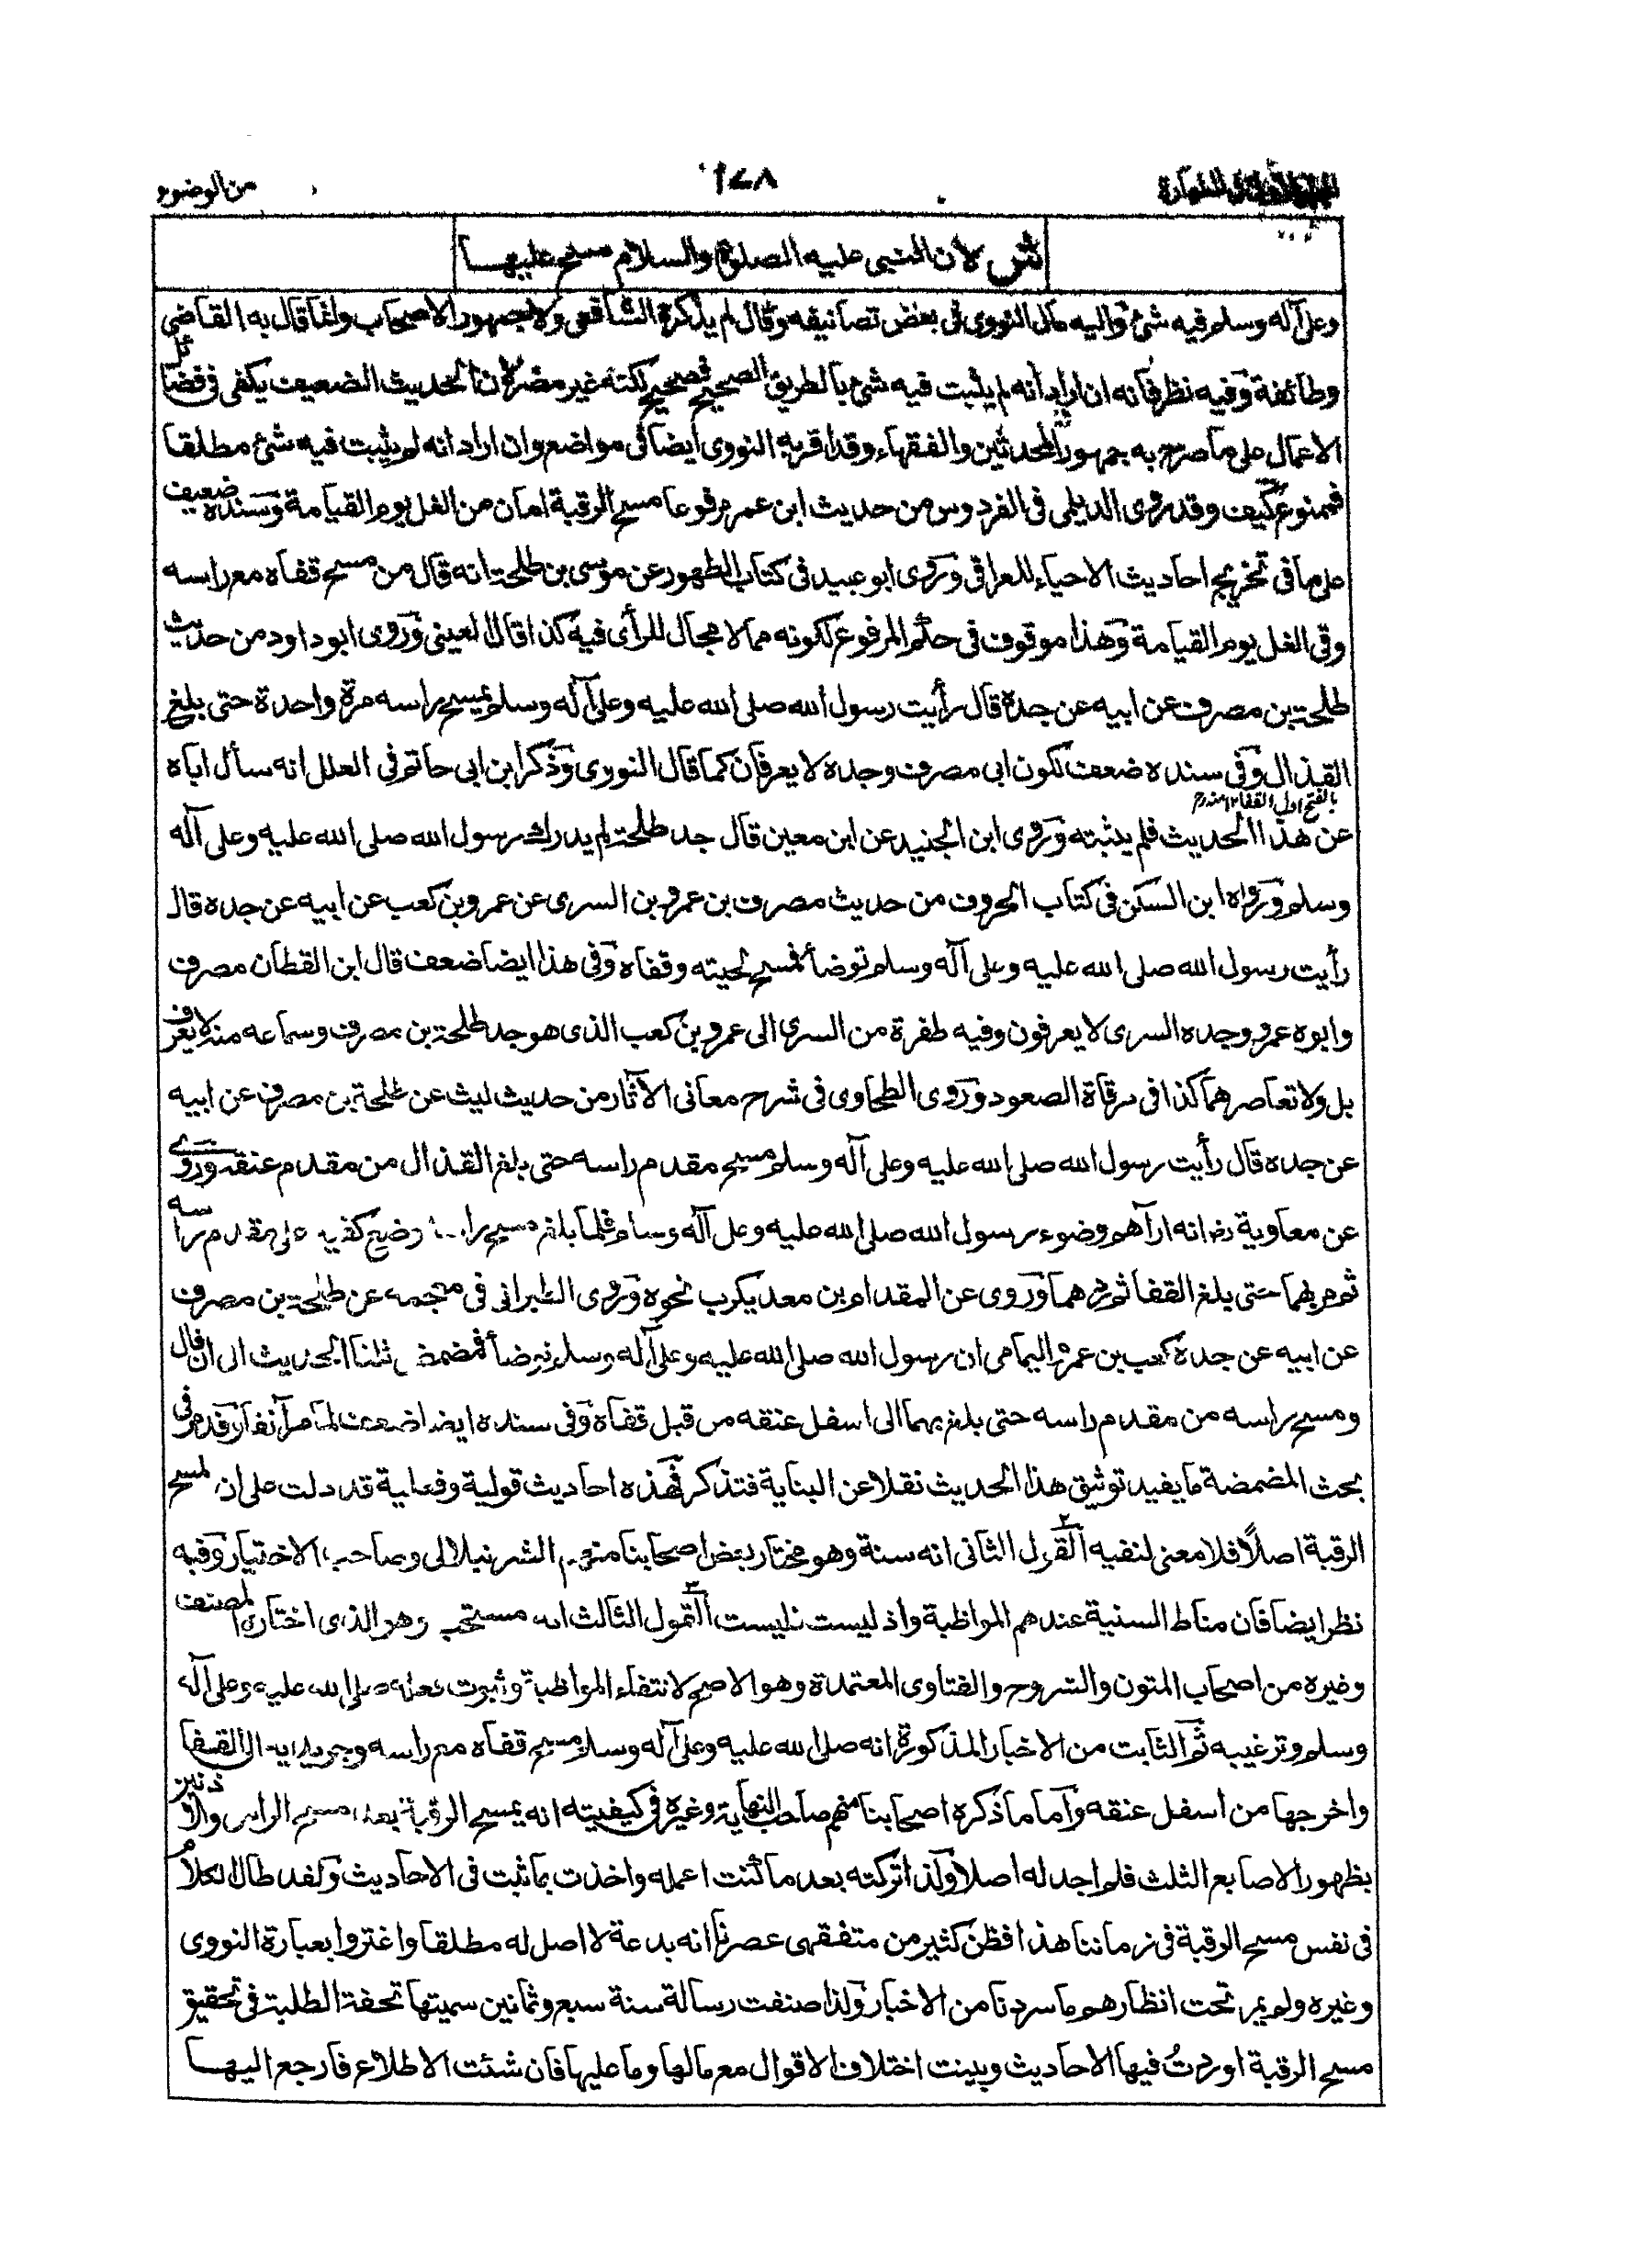 من الوضوء
١٧٨
ش لان النبی علیه الصلوة والسلام مسح علیها
وعلی آله وسلم فیه شئ والیه مال النووی فی بعض تصانیفه وقال لم یذکره الشافعی ولا جمهور الاصحاب وانما قاله به القاضی
وطائفة وفیه نظر فانه ان اراد انه لم یثبت فیه شئ بالطریق الصحیح فصحیح لکنه غیر مضر لان الحدیث الضعیف یکفی فی فضائل
الاعمال علی ما صرح به جمهور المحدثین والفقهاء وقد اقر به النووی ایضا فی مواضع وان اراد انه لم یثبت فیه شئ مطلقا
فممنوع کیف وقد روی الدیلمی فی الفردوس من حدیث ابن عمر مرفوعا مسح الرقبة امان من الغل یوم القیامة وسنده ضعیف
علی ما فی تخریج احادیث الاحیاء للعراقی وروی ابو عبید فی کتاب الطهور عن موسی بن طلحة انه قال من مسح قفاه مع راسه
وقی الغل یوم القیامة وهذا موقوف فی حکم المرفوع لکونه مما لا مجال للرأی فیه کذا قال العینی وروی ابو داود من حدیث
طلحة بن مصرف عن ابیه عن جده قال رأیت رسول الله صلی الله علیه وعلی آله وسلم یمسح راسه مرة واحدة حتی بلغ
القذال وفی سنده ضعف لکون ابی مصرف وجده لا یعرفان کما قال النووی وذکر ابن ابی حاتم فی العلل انه سأل اباه
بالفتح اول القفا ١٢ منه رح
عن هذا الحدیث فلم یثبته وروی ابن الجنید عن ابن معین قال جد طلحة لم یدرك رسول الله صلی الله علیه وعلی آله
وسلم ورواه ابن السکن فی کتاب الحروف من حدیث مصرف بن عمرو بن السری عن عمرو بن کعب عن ابیه عن جده قال
رأیت رسول الله صلی الله علیه وعلی آله وسلم توضأ فمسح لحیته وقفاه وفی هذا ایضا ضعف قال ابن القطان مصرف
وابوه عمرو وجده السری لا یعرفون وفیه طفرة من السری الی عمرو بن کعب الذی هو جد طلحة بن مصرف وسماعه منه لا یعرف
بل ولا تعاصرهما کذا فی مرقاة الصعود وروی الطحاوی فی شرح معانی الآثار من حدیث لیث عن طلحة بن مصرف عن ابیه
عن جده قال رأیت رسول الله صلی الله علیه وعلی آله وسلم مسح مقدم راسه حتی بلغ القذال من مقدم عنقه وروی
عن معاویة رض انه اراهم وضوء رسول الله صلی الله علیه وعلی آله وسلم فلما بلغ مسح راسه وضع کفیه علی مقدم راسه
ثم مر بهما حتی بلغ القفا ثم ردهما وروی عن المقدام بن معدیکرب نحوه وروی الطبرانی فی معجمه عن طلحة بن مصرف
عن ابیه عن جده کعب بن عمرو الیمامی ان رسول الله صلی الله علیه وعلی آله وسلم توضأ فمضمض ثلثا الحدیث الی ان قال
ومسح براسه من مقدم راسه حتی بلغ بهما الی اسفل عنقه من قبل قفاه وفی سنده ایضا ضعف لما مر آنفا وقد مر فی
بحث المضمضة ما یفید توثیق هذا الحدیث نقلا عن البنایة فتذکر فهذه احادیث قولیة وفعلیة قد دلت علی ان لمسح
الرقبة اصلاً فلا معنی لنفیه القول الثانی انه سنة وهو مختار بعض اصحابنا منهم الشرنبلالی وصاحب الاختیار وفیه
نظر ایضا فان مناط السنیة عندهم المواظبة واذ لیست فلیست القول الثالث انه مستحب وهو الذی اختاره المصنف
وغیره من اصحاب المتون والشروح والفتاوی المعتمدة وهو الاصح لانتفاء المواظبة وثبوت فعله صلی الله علیه وعلی آله
وسلم وترغیبه ثم الثابت من الاخبار المذکورة انه صلی الله علیه وعلی آله وسلم مسح قفاه مع راسه وجر یدیه الی القفا
واخرجها من اسفل عنقه واما ما ذکره اصحابنا منهم صاحب النهایة وغیره فی کیفیته انه یمسح الرقبة بعد مسح الراس والاذنین
بظهور الاصابع الثلث فلم اجد له اصلا ولذا ترکته بعد ما کنت اعمله واخذت بما ثبت فی الاحادیث ولقد طال الکلام
فی نفس مسح الرقبة فی زماننا هذا فظن کثیر من متفقهی عصرنا انه بدعة لا اصل له مطلقا واغتروا بعبارة النووی
وغیره ولم یمر تحت انظارهم ما سردنا من الاخبار ولذا صنفت رسالة سنة سبع وثمانین سمیتها تحفة الطلبة فی تحقیق
مسح الرقبة اوردتُ فیها الاحادیث وبینت اختلاف الاقوال مع مالها وما علیها فان شئت الاطلاع فارجع الیها